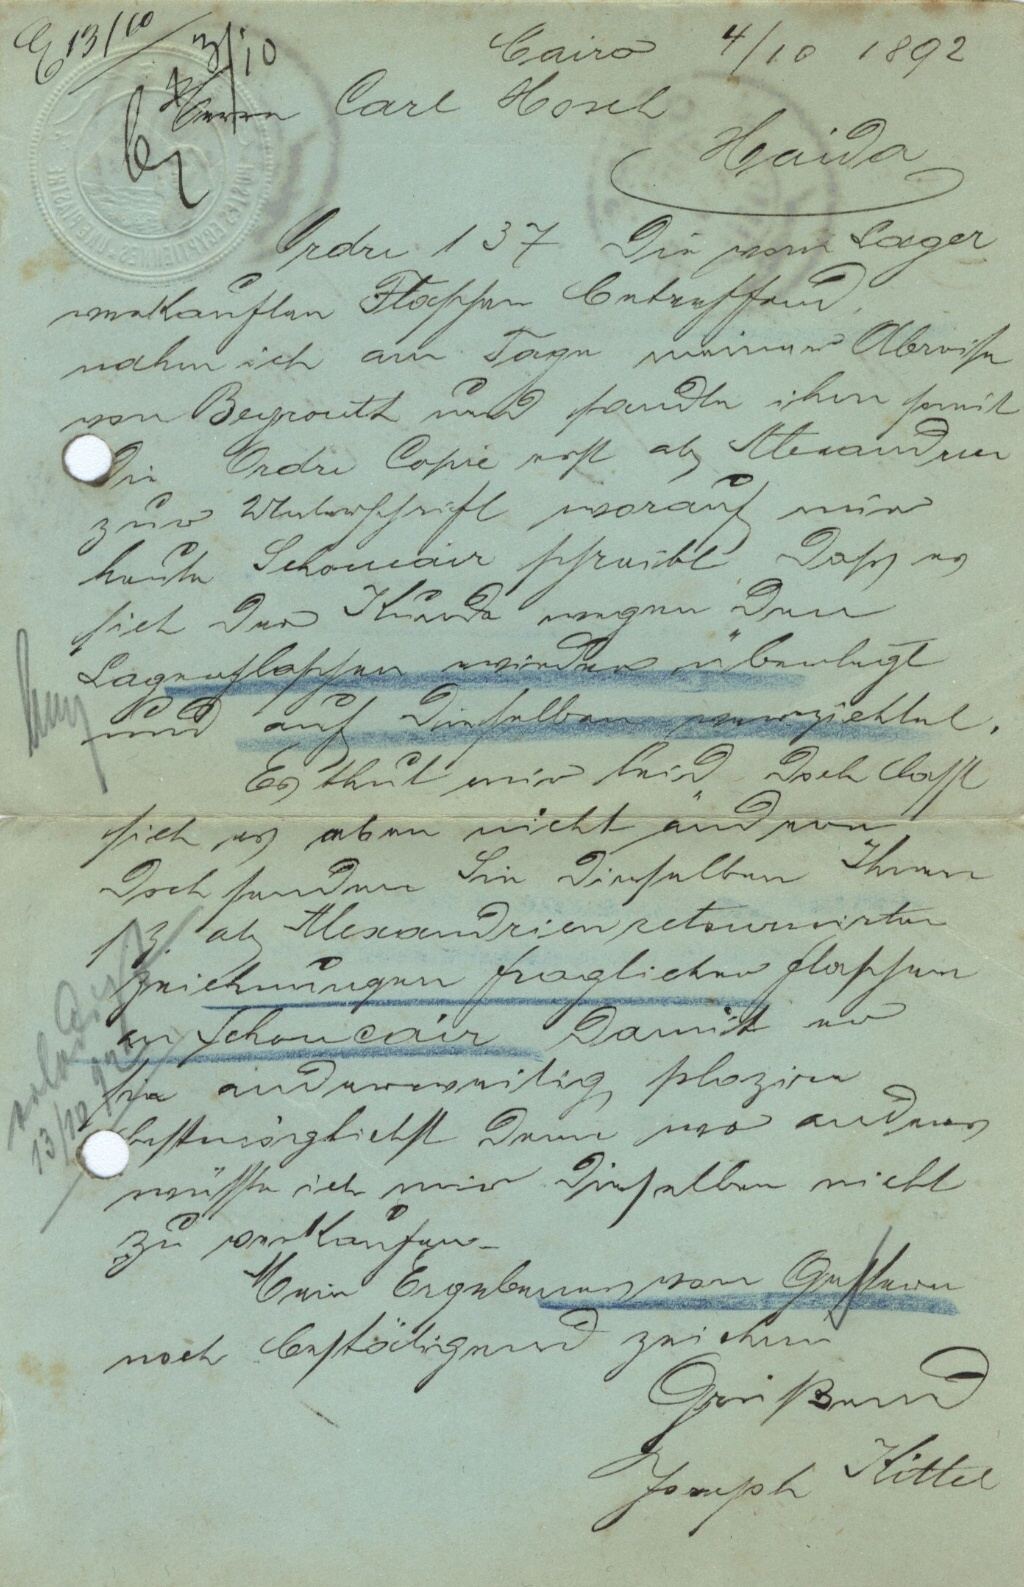 E 13/10
3/10
Cairo 4/10 1892
Herrn Carl Hosch
Haida
Ordre 137 Die vom Lager
verkauften Flaschen betreffend,
nahm ich am Tage meiner Abreise
von Beyrouth und sandte ihm somit
die Ordre Copie erst ab Alexandrien
zur Unterschrift worauf mir
heute Schoucair schreibt, dass es
sich der Kunde wegen den
Lagerflaschen wieder überlegt
und auf dieselben verzichtet.
Es thut mir leid, doch lässt
sich es eben nicht ändern,
doch senden Sie dieselben Ihnen
s. Z. ab Alexandrien retournirten
Zeichnungen fraglicher Flaschen
an Schoucair damit er
sie anderweitig plazire
bestmöglichst denn wo anders
wüsste ich mir dieselben nicht
zu verkaufen.
Mein Ergebenes von Gestern
noch bestätigend zeichne
Grüßend
Joseph Kittel
13/10 92